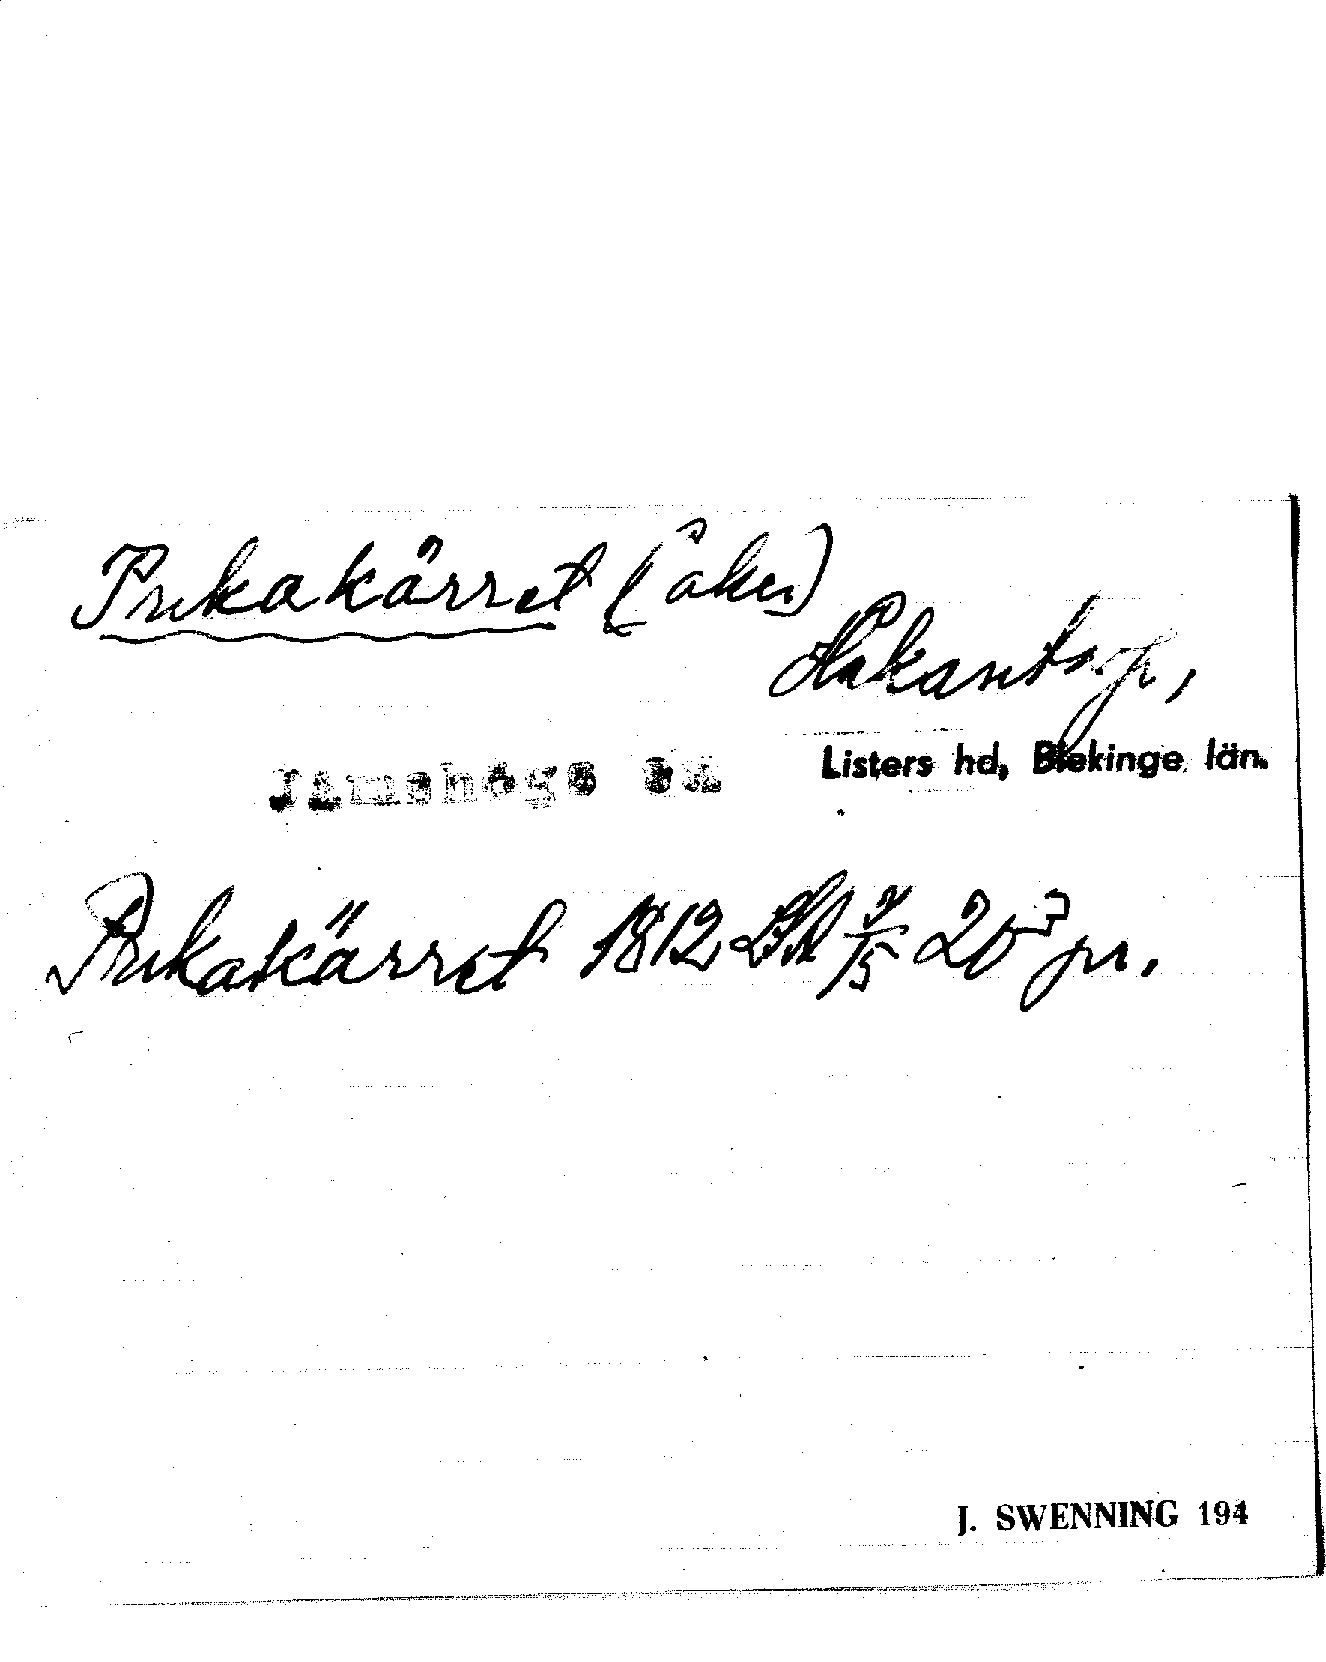 Pukakärret (åker)
Håkantorp,
Jämshögs sn
Listers hd, Blekinge län.
Pukakärret 1812 LSA 2/15 20 3 pr.
J. SWENNING 194